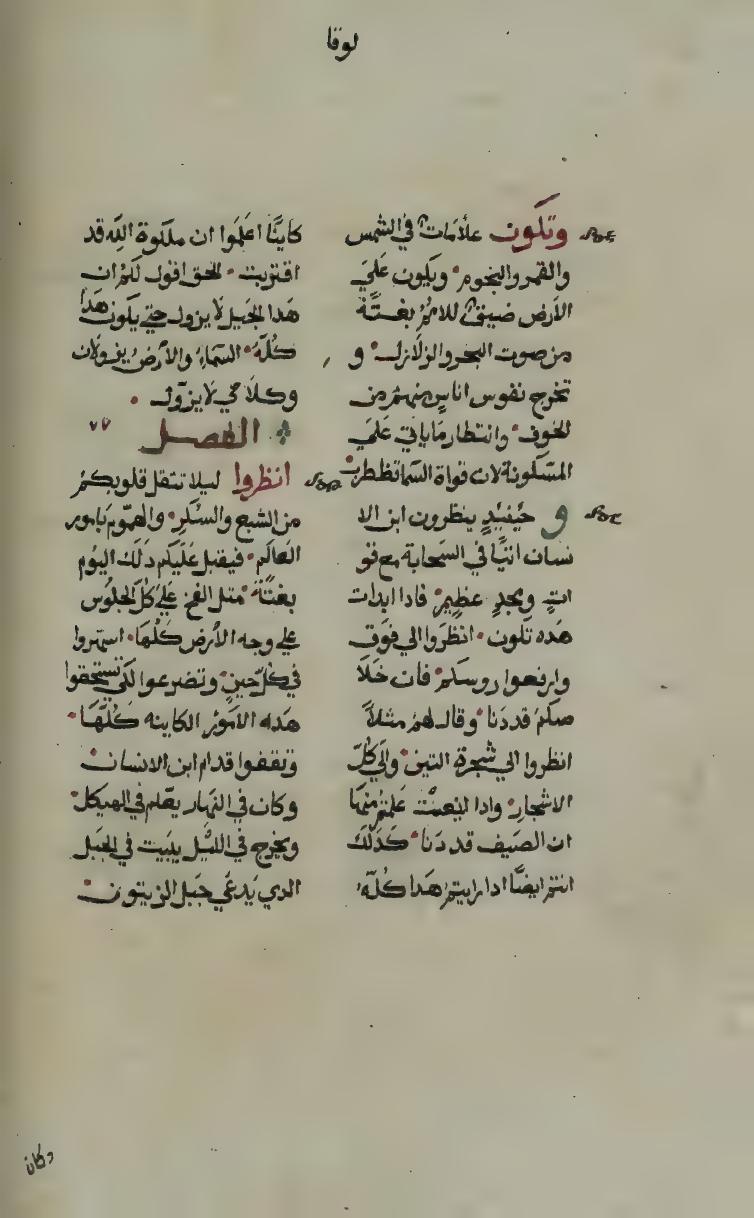 لوقا
وتكون علامات في الشمس
والقمر والنجوم ويكون علي
الأرض ضيق للامم بغتة
من صوت البحر والزلازل و
تخرج نفوس اناس منهم من
الخوف وانتظار ما ياتي علي
المسكونة لان قواة السما تظطرب
و حينيد ينظرون ابن الا
نسان اتيا في السحابة مع قو
ات ومجد عظيم فادا ابدات
هده تكون انظروا الي فوق
وارفعوا روسكم فان خلا
صكم قد دنا وقال لهم مثلا
انظروا الي شجرة التين والي كل
الاشجار وادا اينعت علمتم منها
ان الصيف قد دنا كدلك
انتم ايضا ادا رايتم هدا كله
كاينا اعلموا ان ملكوة الله قد
اقتربت الحق اقول لكم ان
هدا الجيل لا يزول حتي يكون هدا
كله السماء والأرض يزولان
وكلامي لا يزول
الفصل ٧٧
انظروا ليلا تتقل قلوبكم
من الشبع والسكر والهموم بامور
العالم فيقبل عليكم دلك اليوم
بغتة متل الفخ علي كل الجلوس
علي وجه الأرض كلها اسهروا
في كل حين وتضرعوا لكي تستحقوا
هده الامور الكاينه كلها
وتقفوا قدام ابن الانسان
وكان في النهار يعلم في الهيكل
ويخرج في الليل يبيت في الجبل
الدي يدعي جبل الزيتون
وكان